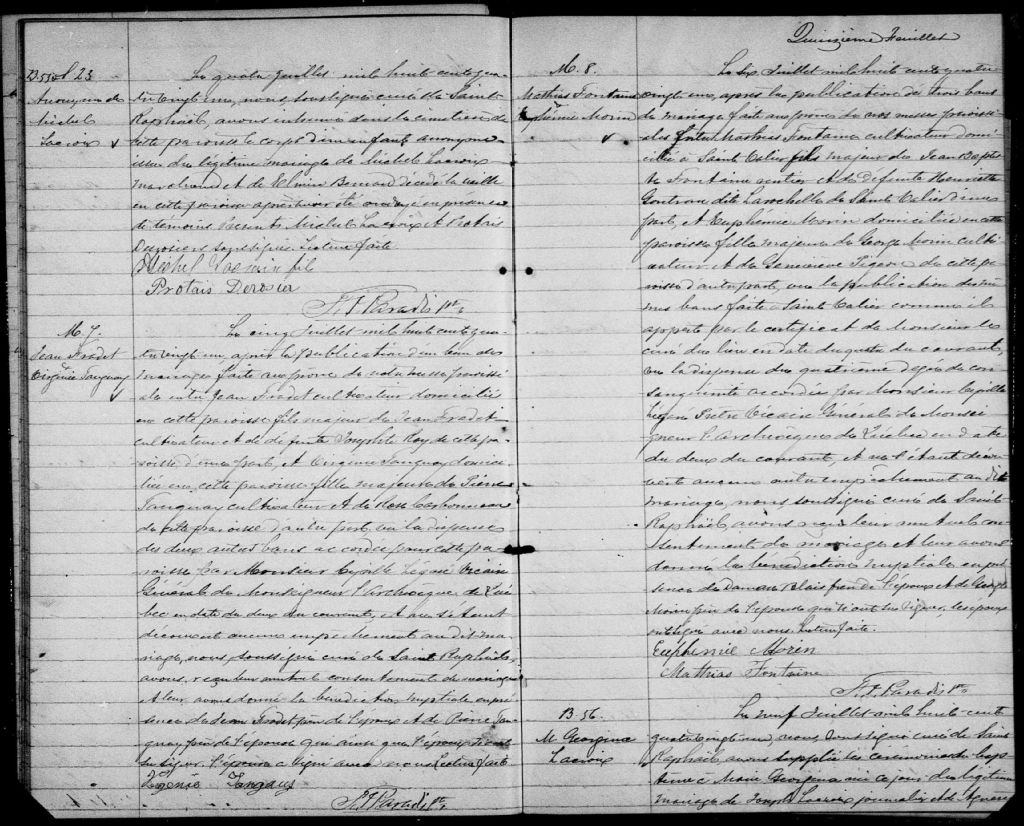 B.55 et S. 23
Anonyme de
Michel
Lacroix
Le quatre Juillet mil huit cent qua-
tre vingt un, nous soussigné curé de Saint
Raphaël, avons inhumé dans le cimetière de
cette paroisse le corps d'un enfant anonyme
issu du légitime mariage de Michel Lacroix
marchand et de Bernard décédé la veille
en cette paroisse après avoir été ondoyé en présence
de témoins Michel Lacroix et Protais
Derosiers soussignés Lecture faite
Michel Lacroix fils
Protais Derosier
F. X. Paradis Ptre
M. 7.
Jean Fradet
Virginie Tanguay
Le cinq Juillet mil huit cent qua-
tre vingt un, après la publication d'un ban de
mariage faite au prône de notre messe paroissi-
ale entre Jean Fradet cultivateur domicilié
en cette paroisse fils majeur de Jean Fradet
cultivateur et de défunte Josephte Roy de cette pa-
roisse d'une part, et Virginie Tanguay domici-
liée en cette paroisse fille majeure de Pierre
Tanguay cultivateur et de Rose Carbonneau
de cette paroisse d'autre part, vu la dispense
des deux autres bans accordée pour cette pa-
roisse par Monsieur Cyrille Légaré Vicaire
Général de Monseigneur l'Archevêque de Qué-
bec en date du deux du courant, et ne s'étant
découvert aucun empêchement au dit ma-
riage, nous soussigné curé de Saint Raphaël,
avons reçu leur mutuel consentement de mariage
et leur avons donné la bénédiction nuptiale en pré-
sence de Jean Fradet père de l'époux et de Pierre Tan-
guay père de l'épouse qui ainsi que l'époux n'ont
su signer. L'épouse a signé avec nous Lecture faite
Tanguay
F. X. Paradis Ptre
Quinzième Feuillet
M. 8.
Mathias Fontaine
Euphémie Morin
Le six Juillet mil huit cent quatre
vingt un, après la publication de trois bans
de mariage faite au prône de nos messes paroissi-
ales entre Mathias Fontaine cultivateur domi-
cilié à Saint Valier fils majeur de Jean Baptis-
te Fontaine rentier et de défunte Henriette
Gontran dite Larochelle de Saint Valier d'une
part, et Euphémie Morin domiciliée en cette
paroisse fille majeure de George Morin culti-
vateur et de Geneviève Pigeon de cette pa-
roisse d'autre part, vu la publication des mê-
mes bans faite à Saint Valier comme il
appert par le certificat de Monsieur le
curé du lieu en date du quatre du courant,
vu la dispense du quatrième degré de con-
sanguinité accordée par Monsieur Cyrille
Légaré Prêtre Vicaire Général de Monsei-
gneur l'Archevêque de Québec en date
du deux du courant, et ne s'étant décou-
vert aucun autre empêchement au dit
mariage, nous soussigné curé de Saint
Raphaël, avons reçu leur mutuel con-
sentement de mariage et leur avons
donné la bénédiction nuptiale en pré-
sence de Damase Blais de l'époux et de George
Morin père de l'épouse qui n'ont su signer, les époux
ont signé avec nous. Lecture faite.
Euphémie Morin
Mathias Fontaine
F. X. Paradis Ptre
B. 56.
M. Georgina
Lacroix
Le neuf Juillet mil huit cent
quatre vingt un, nous soussigné curé de Saint
Raphaël avons suppléé les cérémonies du bap-
tême à Marie Georgina née ce jour du légitime
mariage de Joseph Lacroix journalier et de